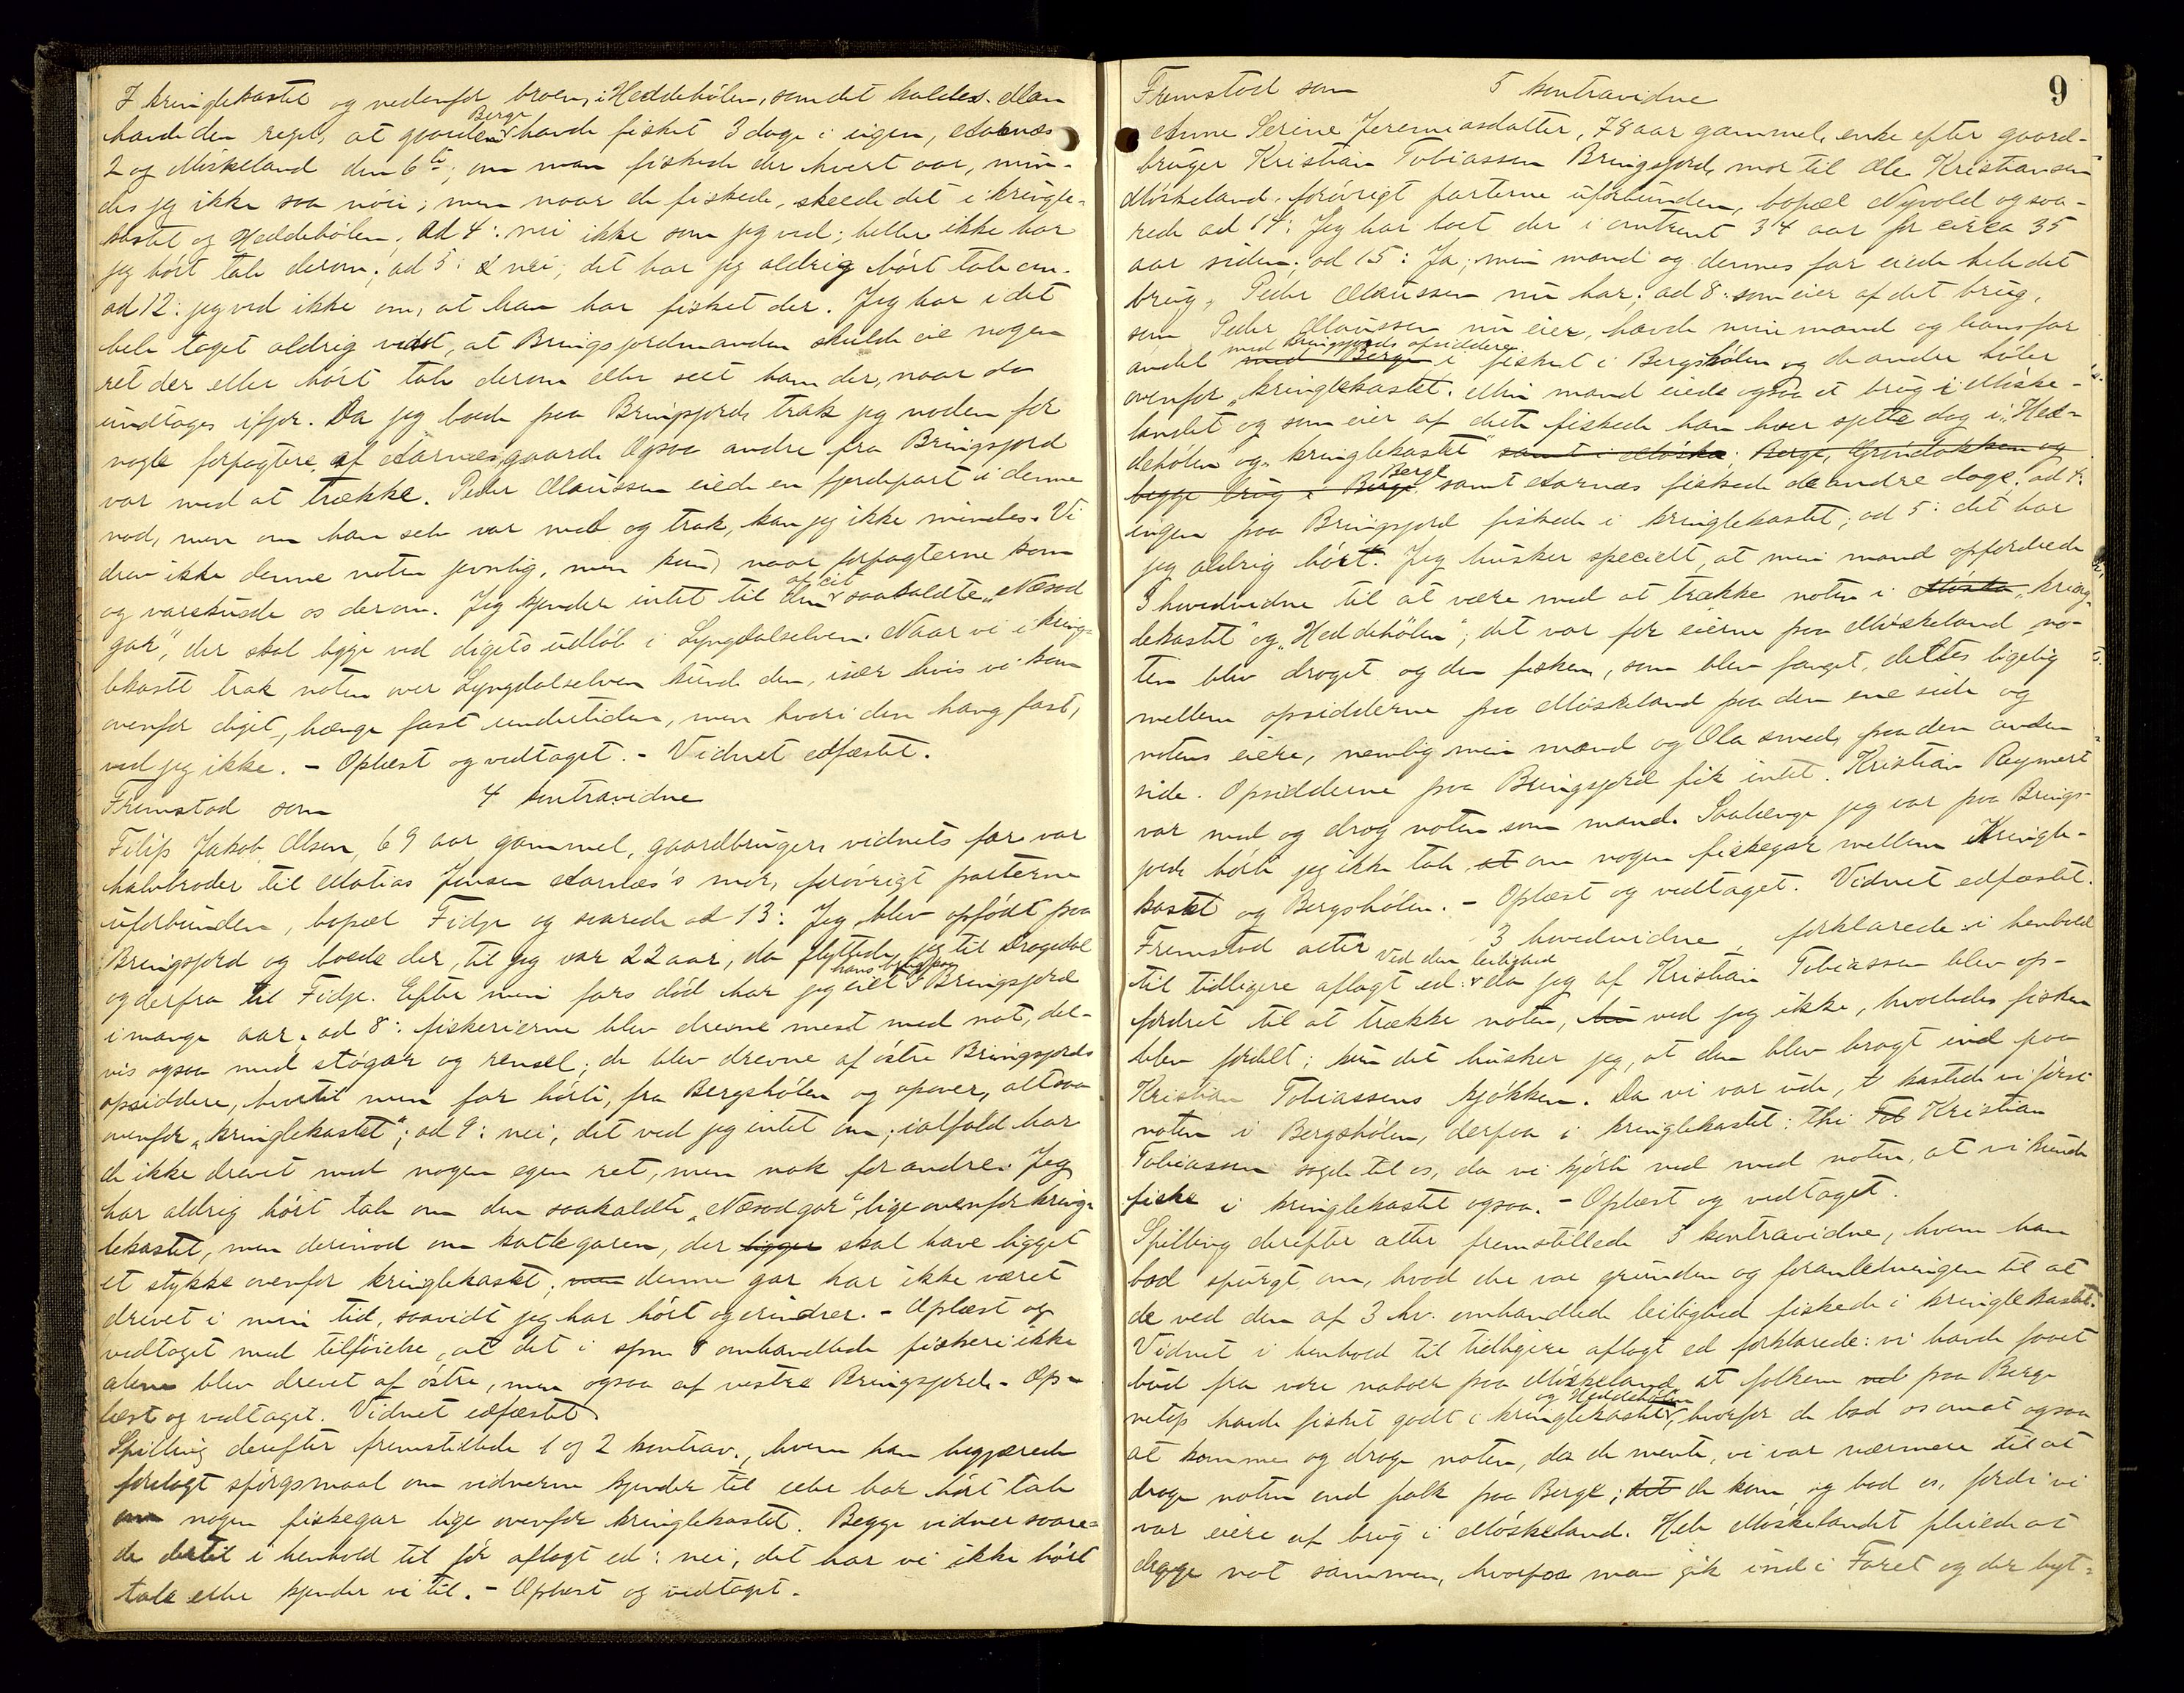 I kringlekastet og nedenfor broen, i Heddehölen, som det kaldes. Man
havde den regel, at gaarden Berge havde fisket 3 dage i eigen, Aarnæs
2 og Möskeland den 6te; om man fiskede der hvert aar, min-
des jeg ikke saa nöie; men naar de fiskede, skeede det i kringle-
kastet og Heddehölen; ad 4: nei ikke som jeg ved; heller ikke har
jeg hört tale derom; ad 5: nei; det har jeg aldrig hört tale om.
ad 12: jeg ved ikke om, at han har fisket der. Jeg har i det
hele taget aldrig vidst, at Bringsjordmanden skulde eie nogen
ret der eller hört tale derom eller seet ham der, naar da
undtages ifjor. Da jeg boede paa Bringsjord, trak jeg noden for
nogle forpagtere af Aarnæsgaarde. Ogsaa andre fra Bringsjord
var med at trække. Peder Olaussen eiede en fjerdepart i denne
nod, men om han selv var med og trak, kan jeg ikke mindes. Vi
drev ikke denne noten jevnlig, men kun, naar forpagterne kom
og varskuede os derom. Jeg kjender intet til den saakaldte „Næsod
gar", der skal ligge ved digets udlöb i Lyngdalselven. Naar vi i kring-
lekastet trak noten over Lyngdalselven kunde den, især hvis vi kom
ovenfor diget, hænge fast undertiden, men hvori den hang fast,
ved jeg ikke. - Oplæst og vedtaget. - Vidnet edfæstet.
Fremstod som 4 kontravidne
Filip Jakob Olsen, 69 aar gammel, gaardbruger, vidnets far var
halvbroder til Matias Jensen Aarnæs's mor, forövrigt parterne
uforbunden, bopæl Fidje og svarede ad 13: Jeg blev opfödt paa
Bringsjord og boede der, til jeg var 22 aar, da flyttede jeg til Dragedal
og derfra til Fidje. Efter min fars död har jeg eiet hans brug paa Bringsjord
i mange aar; ad 8: fiskerierne blev drevne mest med not, del-
vis ogsaa med stögar og rensel; de blev drevne af östre Bringsjords
opsiddere, hvortil min far hörte, fra Bergshölen og opover, altsaa
ovenfor „kringlekastet"; ad 9: nei, det ved jeg intet om; ialfald har
de ikke drevet med nogen egen ret, men nok for andre. Jeg
har aldrig hört tale om den saakaldte „Næsodgar" lige ovenfor kring-
lekastet, men derimod om kattegaren, der ligger skal have ligget
et stykke ovenfor kringlekastet; men denne gar har ikke været
drevet i min tid, saavidt jeg har hört og erindrer. - Oplæst og
vedtaget med tilföielse, at det i spm 8 omhandlede fiskeri ikke
alene blev drevet af östre, men ogsaa af vestre Bringsjord. - Op-
læst og vedtaget. Vidnet edfæstet.
Spilling derefter fremstillede 1 og 2 kontrav., hvem han begjærede
forelagt spörgsmaal om vidnerne kjender til eller har hört tale
om nogen fiskegar lige ovenfor kringlekastet. Begge vidner svare-
de dertil i henhold til för aflagt ed: nei, det har vi ikke hört
tale eller kjender vi til. - Oplæst og vedtaget.
9
Fremstod som 5 kontravidne
Anne Serine Jeremiasdatter, 78 aar gammel, enke efter gaard-
bruger Kristian Tobiassen Bringsjord, mor til Ole Kristiansen
Möskeland, forövrigt parterne uforbunden, bopæl Nyvold og sva-
rede ad 14: Jeg har boet der i omtrent 34 aar for circa 35
aar siden; ad 15: Ja; min mand og dennes far eiede hele det
brug, Peder Olaussen nu har; ad 8: som eier af det brug,
som Peder Olaussen nu eier, havde min mand og hans far
andel med Berge med Bringsjords opsiddere i fisket i Bergshölen og de andre höler
ovenfor „kringlekastet. Min mand eiede ogsaa et brug i Möske-
landet og som eier af dette fiskede han hver sjette dag i „Hed-
dehölen" og „kringlekastet" samt i Möska; Berge, Grindokken og
begge brug i Berge Berge samt Aarnæs fiskede de andre dage; ad 4:
ingen paa Bringsjord fiskede i kringlekastet; ad 5: det har
jeg aldrig hört. Jeg husker specielt, at min mand opfordrede
3 hovedvidne til at være med at trække noten i Möska „kring-
lekastet" og „Heddehölen"; det var for eierne paa Möskeland no-
ten blev draget og den fisken, som blev fanget, deltes ligelig
mellem opsidderne paa Möskeland paa den ene side og
notens eiere, nemlig min mand og Ola smed, paa den anden
side. Opsidderne paa Bringsjord fik intet. Kristian Reymert
var med og drog noten som mand. Saalænge jeg var paa Brings-
jord, hörte jeg ikke tale at om nogen fiskegar mellem Kringle-
kastet og Bergshölen. - Oplæst og vedtaget. Vidnet edfæstet.
Fremstod atter 3 hovedvidne, forklarede i henhold
til tidligere aflagt ed: Ved den leilighed da jeg af Kristian Tobiassen blev op-
fordret til at trække noten, ved jeg ikke, hvorledes fisken
blev fordelt; kun det husker jeg, at den blev bragt ind paa
Kristian Tobiassens kjökken. Da vi var ude, kastede vi först
noten i Bergshölen, derpaa i kringlekastet: thi Kristian
Tobiassen sagde til os, da vi kjörte ned med noten, at vi kunde
fiske i kringlekastet ogsaa. - Oplæst og vedtaget.
Spilling derefter atter fremstillede 5 kontravidne, hvem han
bad spurgt om, hvad der var grunden og foranledningen til at
de ved den af 3 hv. omhandlede leilighed fiskede i kringlekastet.
Vidnet i henhold til tidligere aflagt ed forklarede: vi havde faaet
bud fra vore naboer paa Möskeland at folkene ved paa Berge
netop havde fisket godt i kringlekastet og Heddehölen, hvorfor de bad os om at ogsaa
at komme og drage noten, da de mente, vi var nærmere til at
drage noten end folk paa Berge; det de kom og bad os, fordi vi
var eiere af brug i Möskeland. Hele Möskelandet pleiede at
drage not sammen, hvorfor man gik ind i Faret og der byt-